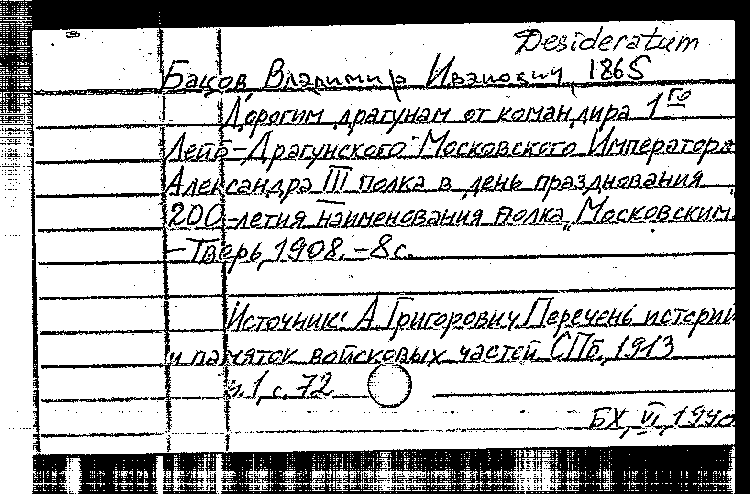 Desideratum
Бацов Владимир Иванович, 1865
Дорогим драгунам от командира 1го
Лейб-Драгунского Московского Императора
Александра III полка в день празднования
200-летия наименования полка „Московским"
-Тверь, 1908. -8 с.
Источник: А. Григорович Перечень историй
и памяток войсковых частей СПб., 1913
ч. 1, с. 72
БХ, VI, 1940